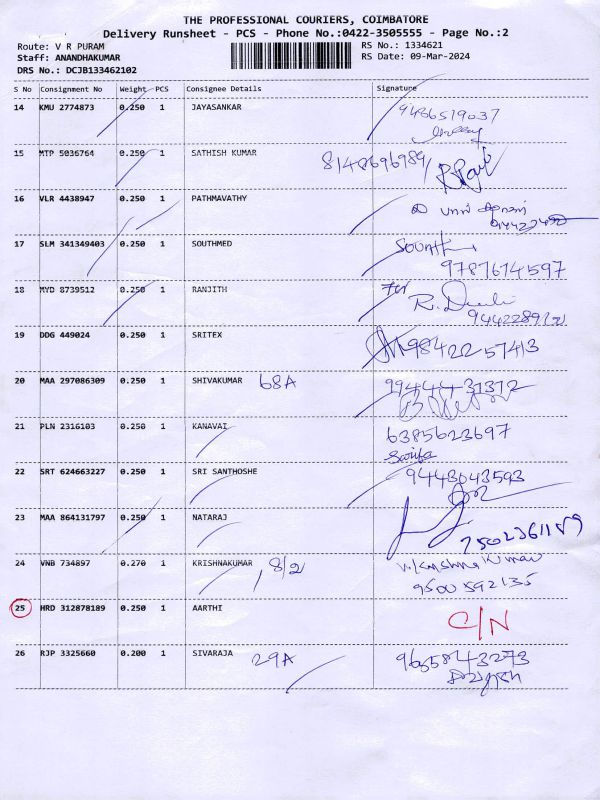 THE PROFESSIONAL COURIERS, COIMBATORE
Delivery Runsheet - PCS - Phone No.:0422-3505555 - Page No.:2
Route: V R PURAM RS No.: 1334621
Staff: ANANDHAKUMAR RS Date: 09-Mar-2024
DRS No.: DCJB133462102
S No Consignment No Weight PCS Consignee Details Signature
14 KMU 2774873 0.250 1 JAYASANKAR 9486519037
15 MTP 5036764 0.250 1 SATHISH KUMAR 8148696989
16 VLR 4438947 0.250 1 PATHMAVATHY
17 SLM 341349403 0.250 1 SOUTHMED
9787674597
18 MYD 8739512 0.250 1 RANJITH For
19 DDG 449024 0.250 1 SRITEX 9842257413
20 MAA 297086309 0.250 1 SHIVAKUMAR 68A 99444-31372
21 PLN 2316103 0.250 1 KANAVAI 6385623697
22 SRT 624663227 0.250 1 SRI SANTHOSHE 9443043593
23 MAA 864131797 0.250 1 NATARAJ
7502361189
24 VNB 734897 0.270 1 KRISHNAKUMAR 8/2 V. Krishna Kumar
9500592135
25 HRD 312878189 0.250 1 AARTHI C/N
26 RJP 3325660 0.200 1 SIVARAJA 29A 9655843273